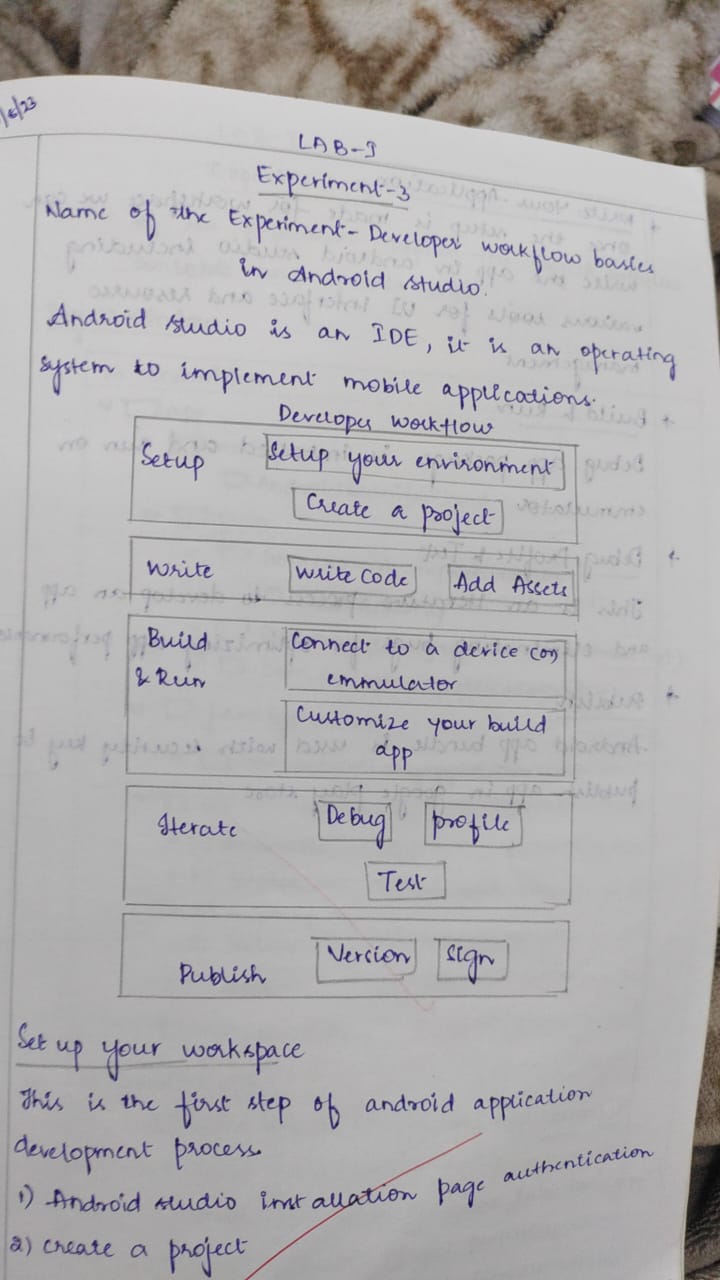 /6/23
LAB-I
Experiment-3
Name of the Experiment- Developer workflow basics
in Android Studio.
Android studio is an IDE, it is an operating
system to implement mobile applications.
Developer workflow
Setup
Setup your environment
Create a project
Write
Write Code
Add Assets
Build
& Run
Connect to a device (or)
emmulator
Customize your build
app
Iterate
Debug
profile
Test
Publish
Version
Sign
Set up your workspace
This is the first step of android application
development process.
1) Android studio installation page authentication
2) create a project